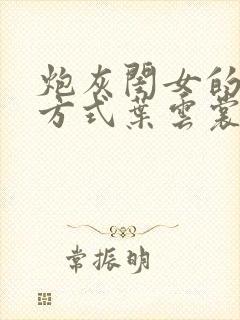 炮灰闺女的
方式葉雲裳
常振明